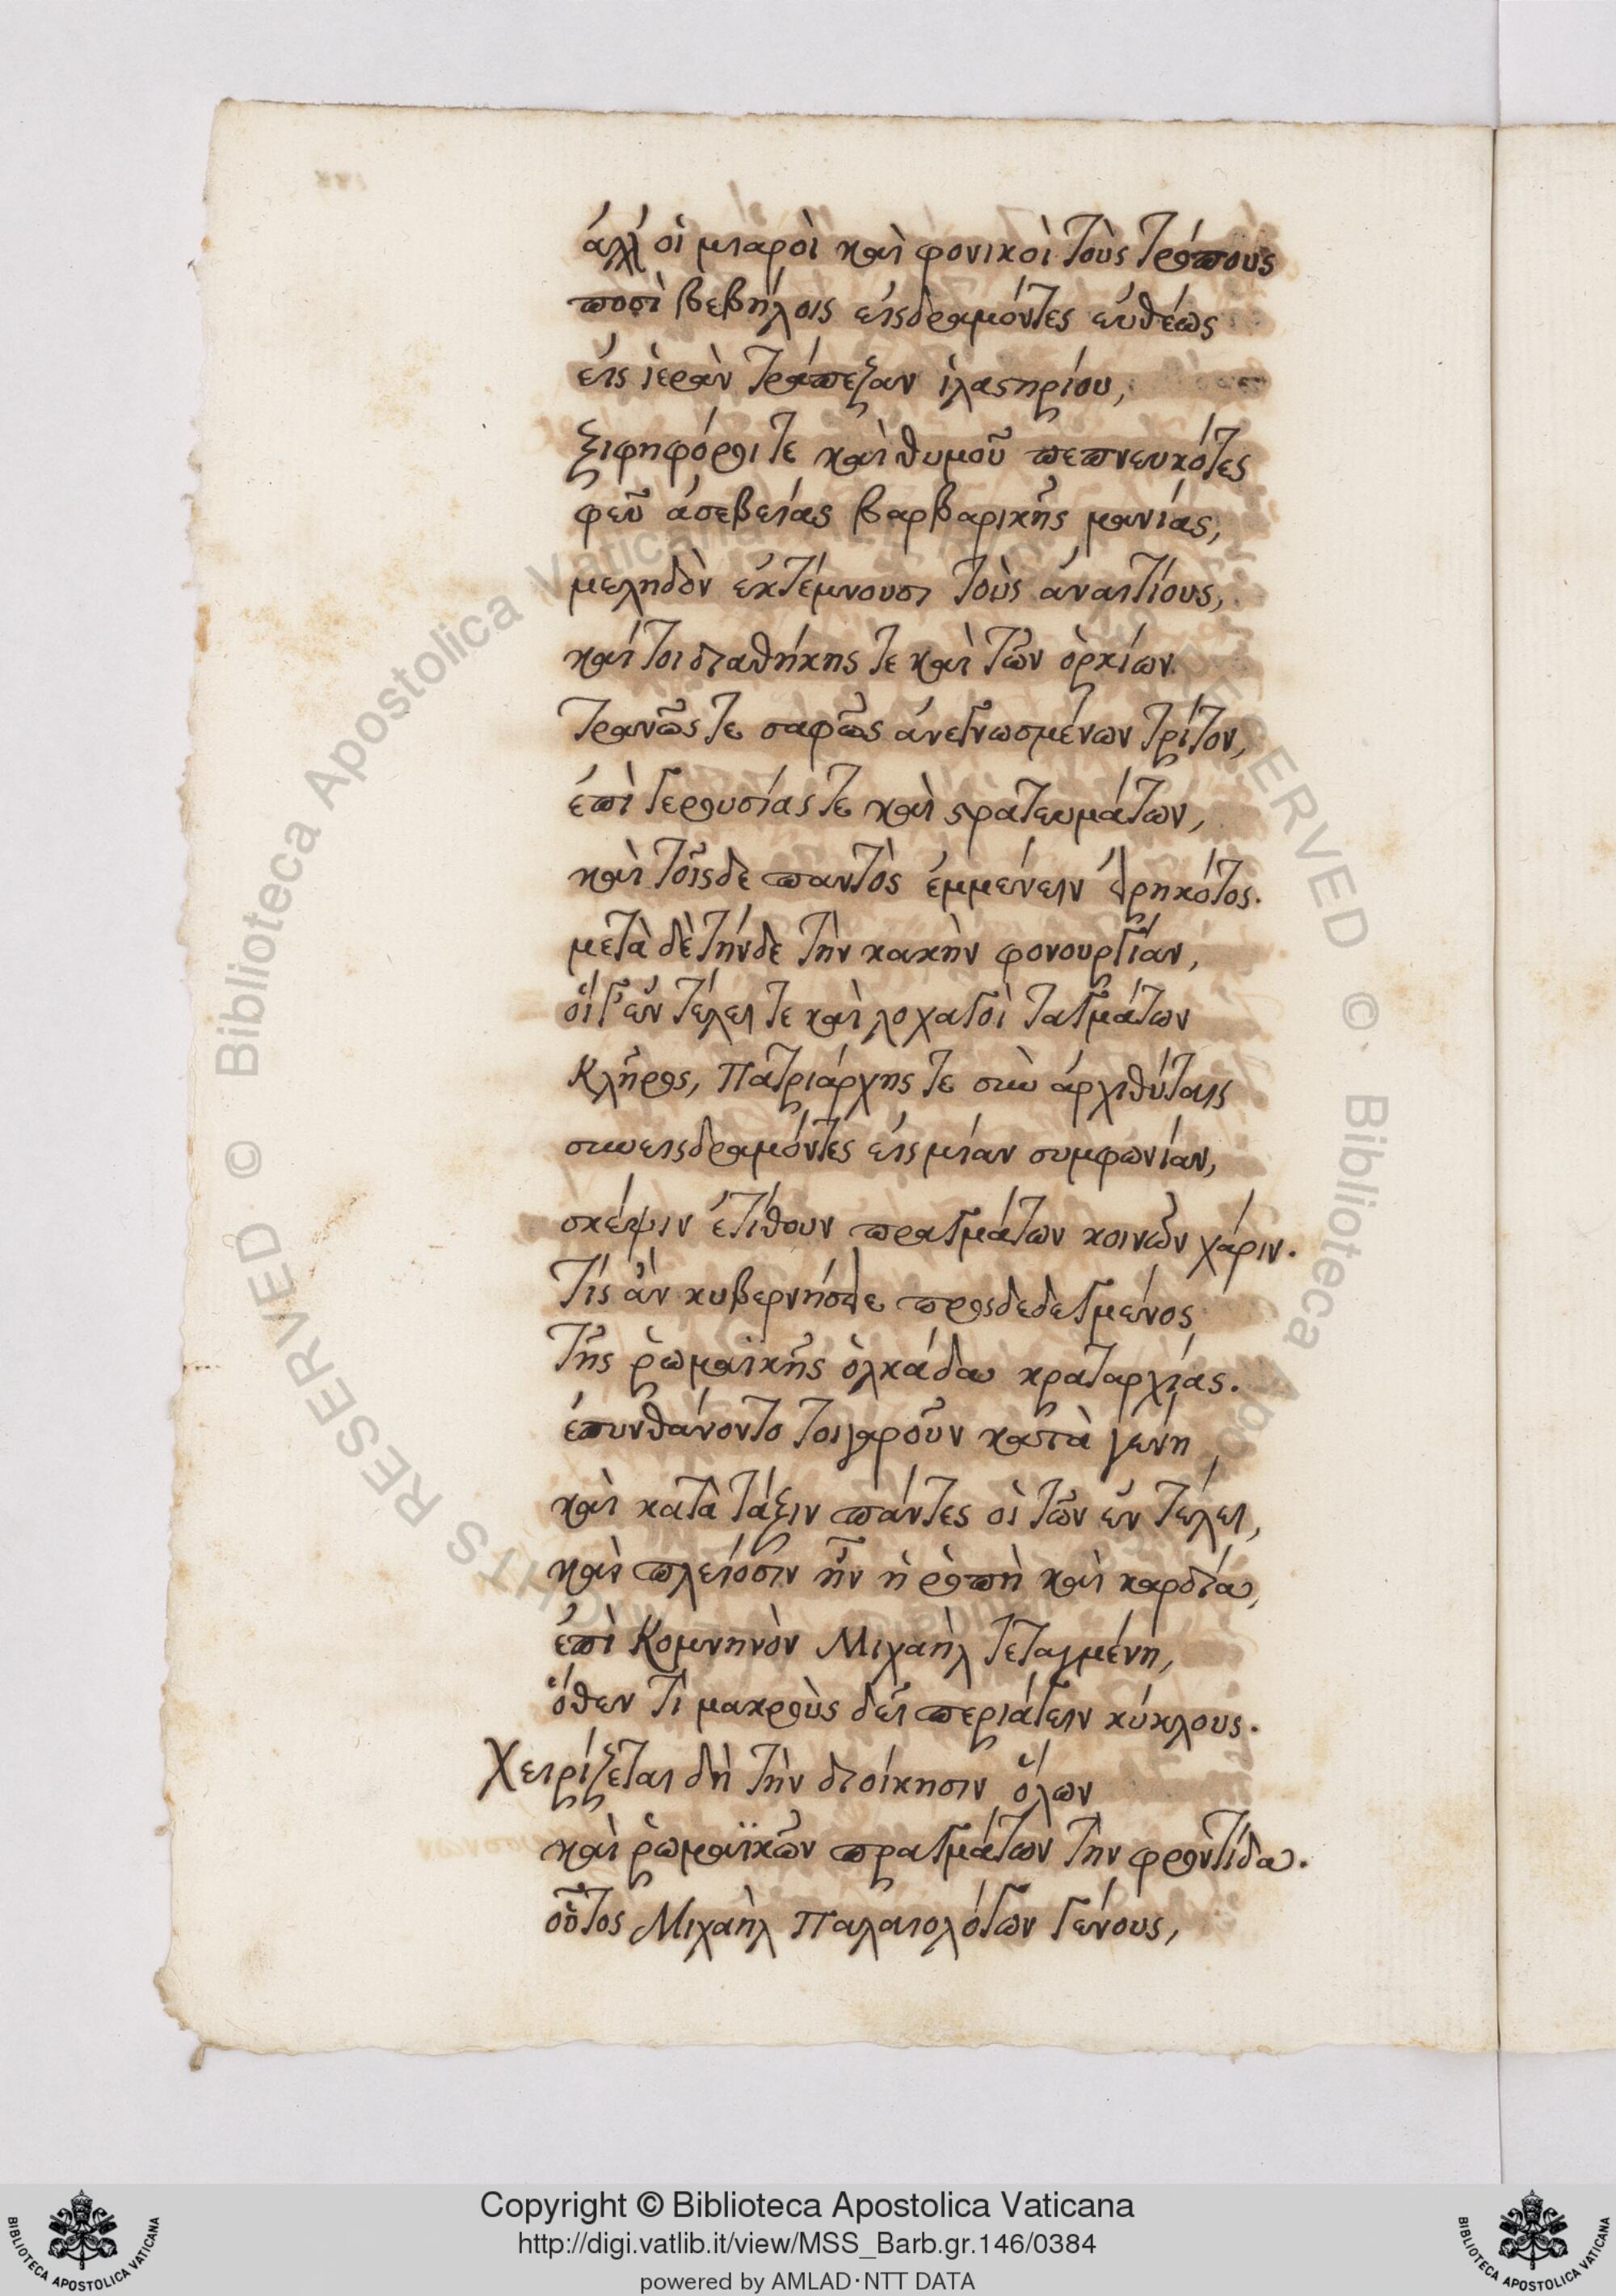 ἀλλ' οἱ μιαροὶ καὶ φονικοὶ τοὺς τρόπους
ποσὶ βεβήλοις εἰςδραμόντες εὐθέως
εἰς ἱερὰν τράπεζαν ἱλαστηρίου,
ξιφηφόροι τε καὶ θυμοῦ πεπνευκότες
φεῦ ἀσεβείας βαρβαρικῆς μανίας,
μεληδὸν ἐκτέμνουσι τοὺς ἀναιτίους,
καίτοι διαθήκης τε καὶ τῶν ὁρκίων
τρανῶς τε σαφῶς ἀνεγνωσμένων τρίτον,
ἐπὶ γερουσίας τε καὶ στρατευμάτων,
καὶ τοῖςδε παντὸς ἐμμένειν εἰρηκότος.
μετὰ δὲ τήνδε τὴν κακὴν φονουργίαν,
οἵ γ' ἐν τέλει τε καὶ λοχαγοὶ ταγμάτων
Κλῆρος, Πατριάρχης τε σὺν ἀρχιθύταις
συνειςδραμόντες εἰς μίαν συμφωνίαν,
σκέψιν ἐτίθουν πραγμάτων κοινῶν χάριν.
Τίς ἂν κυβερνήσειε προςδεδεγμένος
τῆς ῥωμαϊκῆς ὁλκάδα κραταρχίας.
ἐπυνθάνοντο τοιγαροῦν κατὰ γένη
καὶ κατὰ τάξιν πάντες οἱ τῶν ἐν τέλει,
καὶ πλείοσιν ἦν ἡ ῥοπὴ καὶ καρδία,
ἐπὶ Κομνηνὸν Μιχαὴλ τεταγμένη,
ὅθεν τί μακροὺς δεῖ περιάγειν κύκλους.
Χειρίζεται δὴ τὴν διοίκησιν ὅλων
καὶ ῥωμαϊκῶν πραγμάτων τὴν φροντίδα.
οὗτος Μιχαὴλ Παλαιολόγων γένους,
Copyright © Biblioteca Apostolica Vaticana
http://digi.vatlib.it/view/MSS_Barb.gr.146/0384
powered by AMLAD·NTT DATA